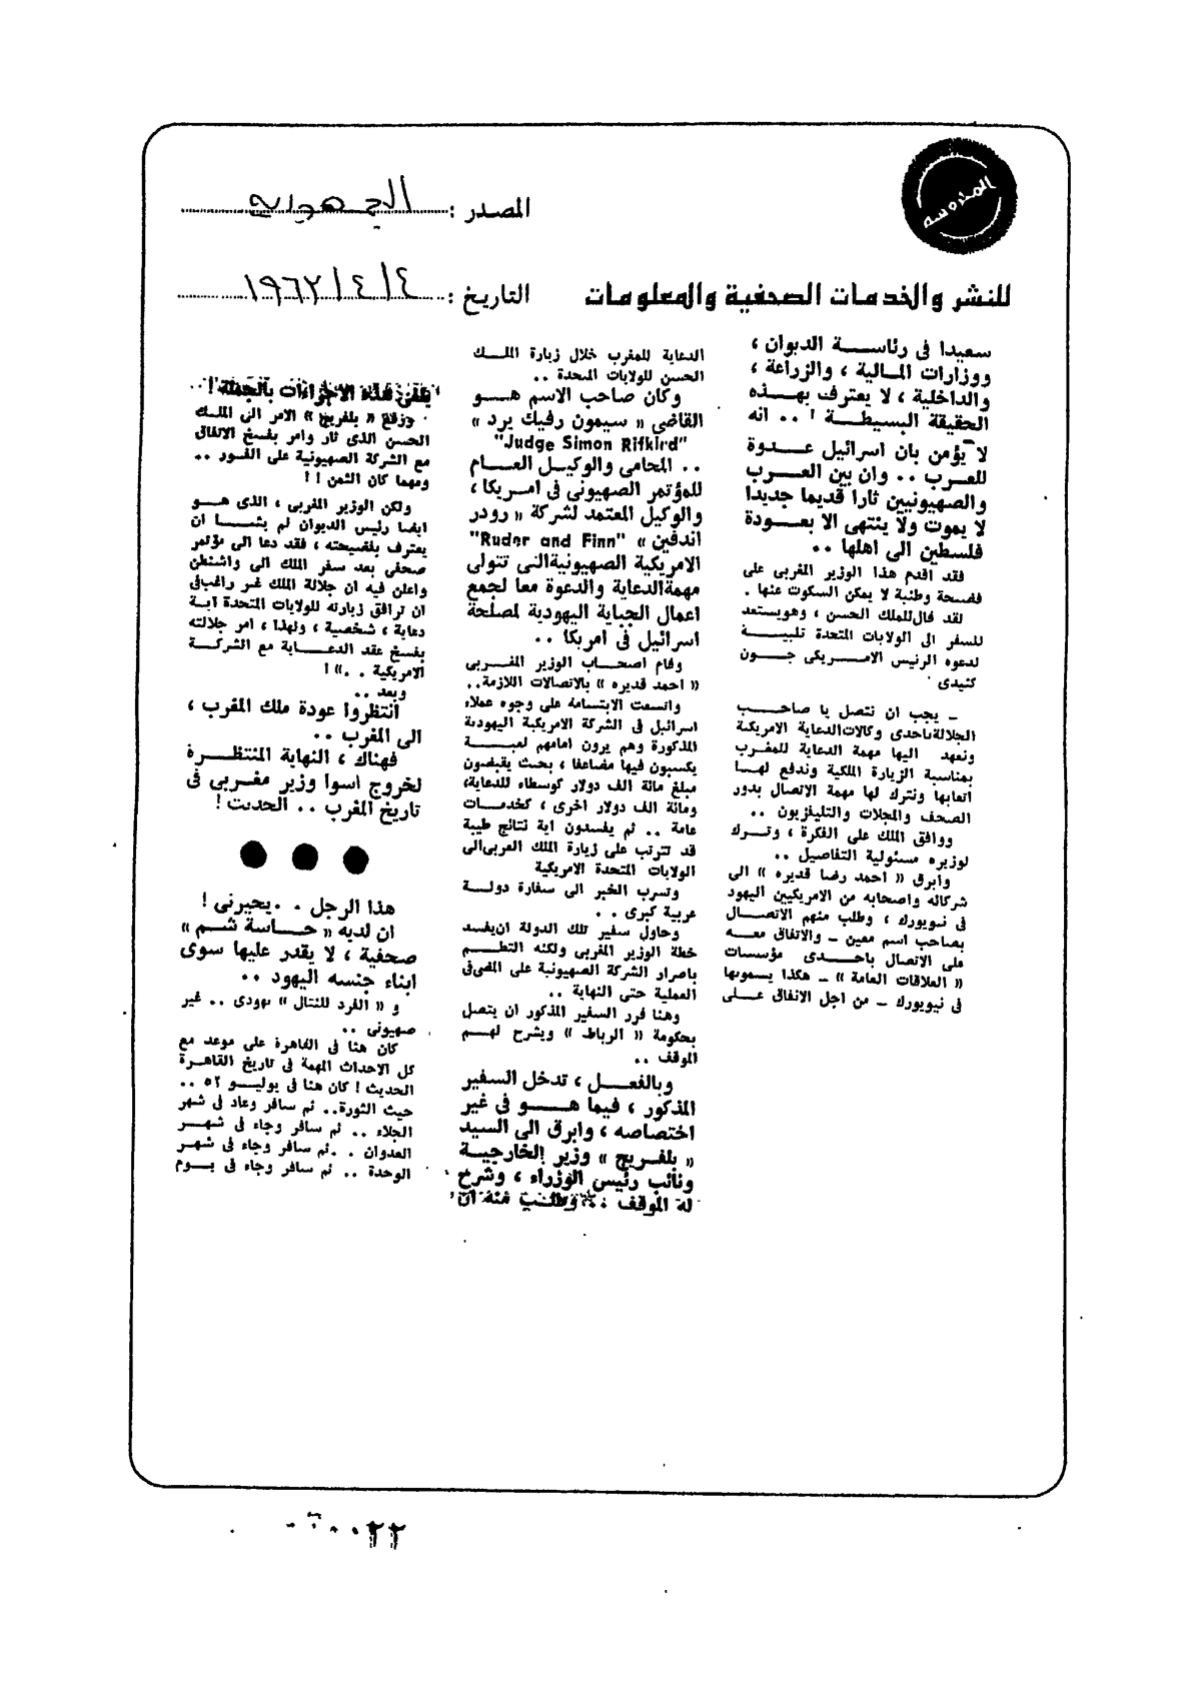 المدروسه
المصدر : الجمهورية
للنشر والخدمات الصحفية والمعلومات
التاريخ : ٤ / ٤ / ١٩٦٢
سعيدا فى رئاسة الديوان ،
ووزارات المالية ، والزراعة ،
والداخلية ، لا يعترف بهذه
الحقيقة البسيطة ! .. انه
لا يؤمن بان اسرائيل عدوة
للعرب .. وان بين العرب
والصهيونيين ثارا قديما جديدا
لا يموت ولا ينتهى الا بعودة
فلسطين الى اهلها ..
فقد اقدم هذا الوزير المغربى على
فضيحة وطنية لا يمكن السكوت عنها .
لقد قال للملك الحسن ، وهو يستعد
للسفر الى الولايات المتحدة تلبية
لدعوه الرئيس الامريكى جون
كنيدى
ـ يجب ان نتصل يا صاحب
الجلالة باحدى وكالات الدعاية الامريكية
ونعهد اليها مهمة الدعاية للمغرب
بمناسبة الزيارة الملكية وندفع لها
اتعابها ونترك لها مهمة الاتصال بدور
الصحف والمجلات والتليفزيون ..
ووافق الملك على الفكرة ، وترك
لوزيره مسئولية التفاصيل ..
وابرق « احمد رضا قديره » الى
شركائه واصحابه من الامريكيين اليهود
فى نيويورك ، وطلب منهم الاتصال
بصاحب اسم معين ـ والاتفاق معه
على الاتصال باحدى مؤسسات
« العلاقات العامة » ـ هكذا يسمونها
فى نيويورك ـ من اجل الاتفاق على
الدعاية للمغرب خلال زيارة الملك
الحسن للولايات المتحدة ..
وكان صاحب الاسم هو
القاضى « سيمون رفيك يرد »
"Judge Simon Rifkird"
.. المحامى والوكيل العام
للمؤتمر الصهيونى فى امريكا ،
والوكيل المعتمد لشركة « رودر
اندفين » "Ruder and Finn"
الامريكية الصهيونية التى تتولى
مهمة الدعاية والدعوة معا لجمع
اعمال الجباية اليهودية لمصلحة
اسرائيل فى امريكا ..
وقام اصحاب الوزير المغربى
« احمد قديره » بالاتصالات اللازمة..
واتسعت الابتسامة على وجوه عملاء
اسرائيل فى الشركة الامريكية اليهودية
المذكورة وهم يرون امامهم لعبة
يكسبون فيها مضاعفا ، بحيث يقبضون
مبلغ مائة الف دولار كوسطاء للدعاية،
ومائة الف دولار اخرى ، كخدمات
عامة .. ثم يفسدون اية نتائج طيبة
قد تترتب على زيارة الملك العربى الى
الولايات المتحدة الامريكية
وتسرب الخبر الى سفارة دولة
عربية كبرى ..
وحاول سفير تلك الدولة ان يفسد
خطة الوزير المغربى ولكنه التطم
باصرار الشركة الصهيونية على المضى فى
العملية حتى النهاية ..
وهنا قرر السفير المذكور ان يتصل
بحكومة « الرباط » ويشرح لهم
الموقف ..
وبالفعل ، تدخل السفير
المذكور ، فيما هو فى غير
اختصاصه ، وابرق الى السيد
« بلفريج » وزير الخارجية
ونائب رئيس الوزراء ، وشرح
له الموقف .. وطلب منه ان
يلغى هذه الاجراءات بالجملة !..
ورفع « بلفريج » الامر الى الملك
الحسن الذى ثار وامر بفسخ الاتفاق
مع الشركة الصهيونية على الفور ..
ومهما كان الثمن !!
ولكن الوزير المغربى ، الذى هو
ايضا رئيس الديوان لم يشأ ان
يعترف بفضيحته ، فقد دعا الى مؤتمر
صحفى بعد سفر الملك الى واشنطن
واعلن فيه ان جلالة الملك غير راغب فى
ان ترافق زيارته للولايات المتحدة اية
دعاية ، شخصية ، ولهذا ، امر جلالته
بفسخ عقد الدعاية مع الشركة
الامريكية ..» !
وبعد ..
انتظروا عودة ملك المغرب ،
الى المغرب ..
فهناك ، النهاية المنتظرة
لخروج اسوا وزير مغربى فى
تاريخ المغرب .. الحديث !
هذا الرجل .. يحيرنى !
ان لديه « حاسة شم »
صحفية ، لا يقدر عليها سوى
ابناء جنسه اليهود ..
و « الفرد للنتال » يهودى .. غير
صهيونى ..
كان هنا فى القاهرة على موعد مع
كل الاحداث المهمة فى تاريخ القاهرة
الحديث ! كان هنا فى يوليو ٥٢ ..
حيث الثورة.. ثم سافر وعاد فى شهر
الجلاء .. ثم سافر وجاء فى شهر
العدوان .. ثم سافر وجاء فى شهر
الوحدة .. ثم سافر وجاء فى يوم